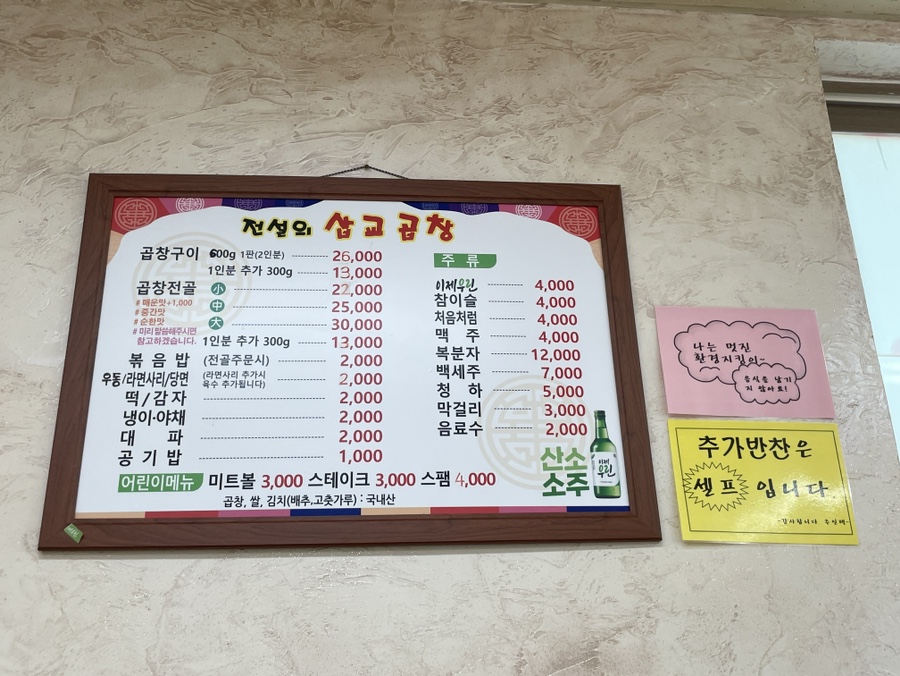 전설의 삽교곱창
곱창구이 600g 1판(2인분) 26,000
1인분 추가 300g 13,000
곱창전골 小 22,000
# 매운맛+1,000
# 중간맛
# 순한맛
# 미리 말씀해주시면
참고하겠습니다.
中 25,000
大 30,000
1인분 추가 300g 13,000
볶음밥 (전골주문시) 2,000
우동/라면사리/당면 (라면사리 추가시 육수 추가됩니다) 2,000
떡/감자 2,000
냉이·야채 2,000
대파 2,000
공기밥 1,000
주류
이제우린 4,000
참이슬 4,000
처음처럼 4,000
맥주 4,000
복분자 12,000
백세주 7,000
청하 5,000
막걸리 3,000
음료수 2,000
산소
소주
이제
우린
어린이메뉴 미트볼 3,000 스테이크 3,000 스팸 4,000
곱창, 쌀, 김치(배추,고춧가루) : 국내산
나는 멋진
환경지킴이~
음식을 남기
지 않아요!
추가반찬은
셀프 입니다
-감사합니다 주인백-